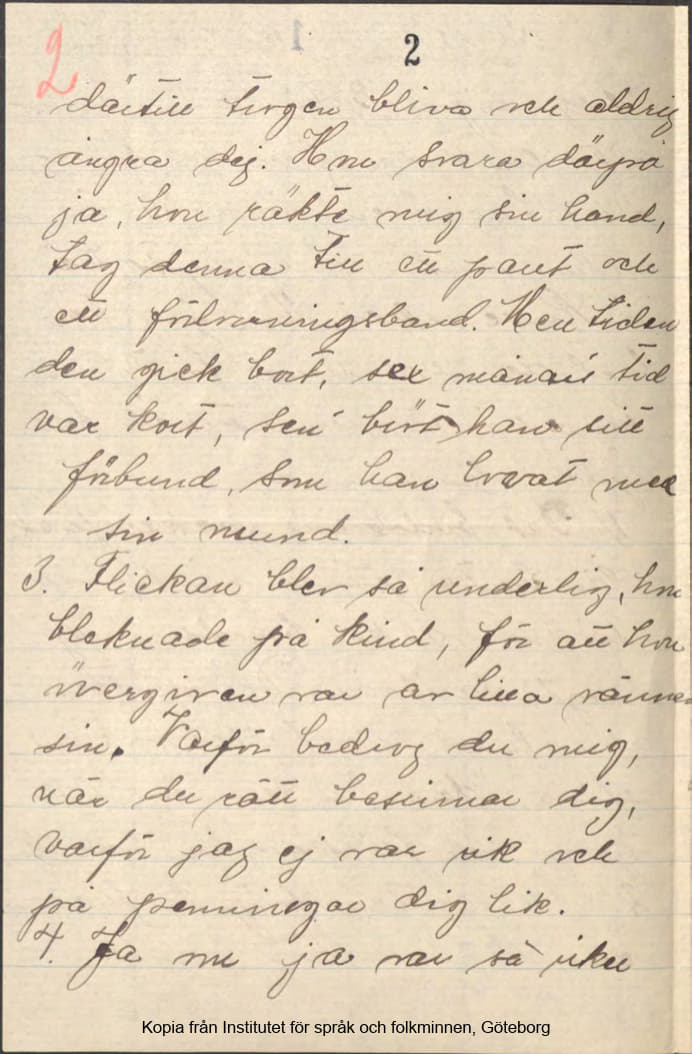 2 2
därtill trogen bliva och aldrig
ångra dig. Hon svara därpå
ja, hon räkte mig sin hand,
tag denna till ett pant och
ett förlovningsband. Men tiden
den gick bort, sex månars tid
var kort, sen bröt han sitt
förbund, som han lovat med
sin mund.
3. Flickan blev så underlig, hon
bleknade på kind, för att hon
övergiven var av lilla vännen
sin. Varför bedrog du mig,
när du rätt besinnar dig,
varför jag ej var rik och
på penningar dig lik.
4. Ja nu ja var så riker
Kopia från Institutet för språk och folkminnen, Göteborg